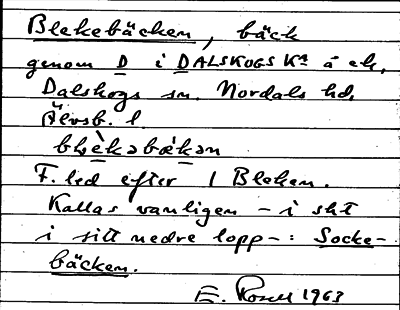 Blekebäcken, bäck
genom D i DALSKOGS Kª å ek,
Dalskogs sn. Nordals hd.
Älvsb. l
blèkəbækən
F. led efter 1 Bleken.
Kallas vanligen - i sht
i sitt nedre lopp - : Socke-
bäcken.
E. Rosell 1963